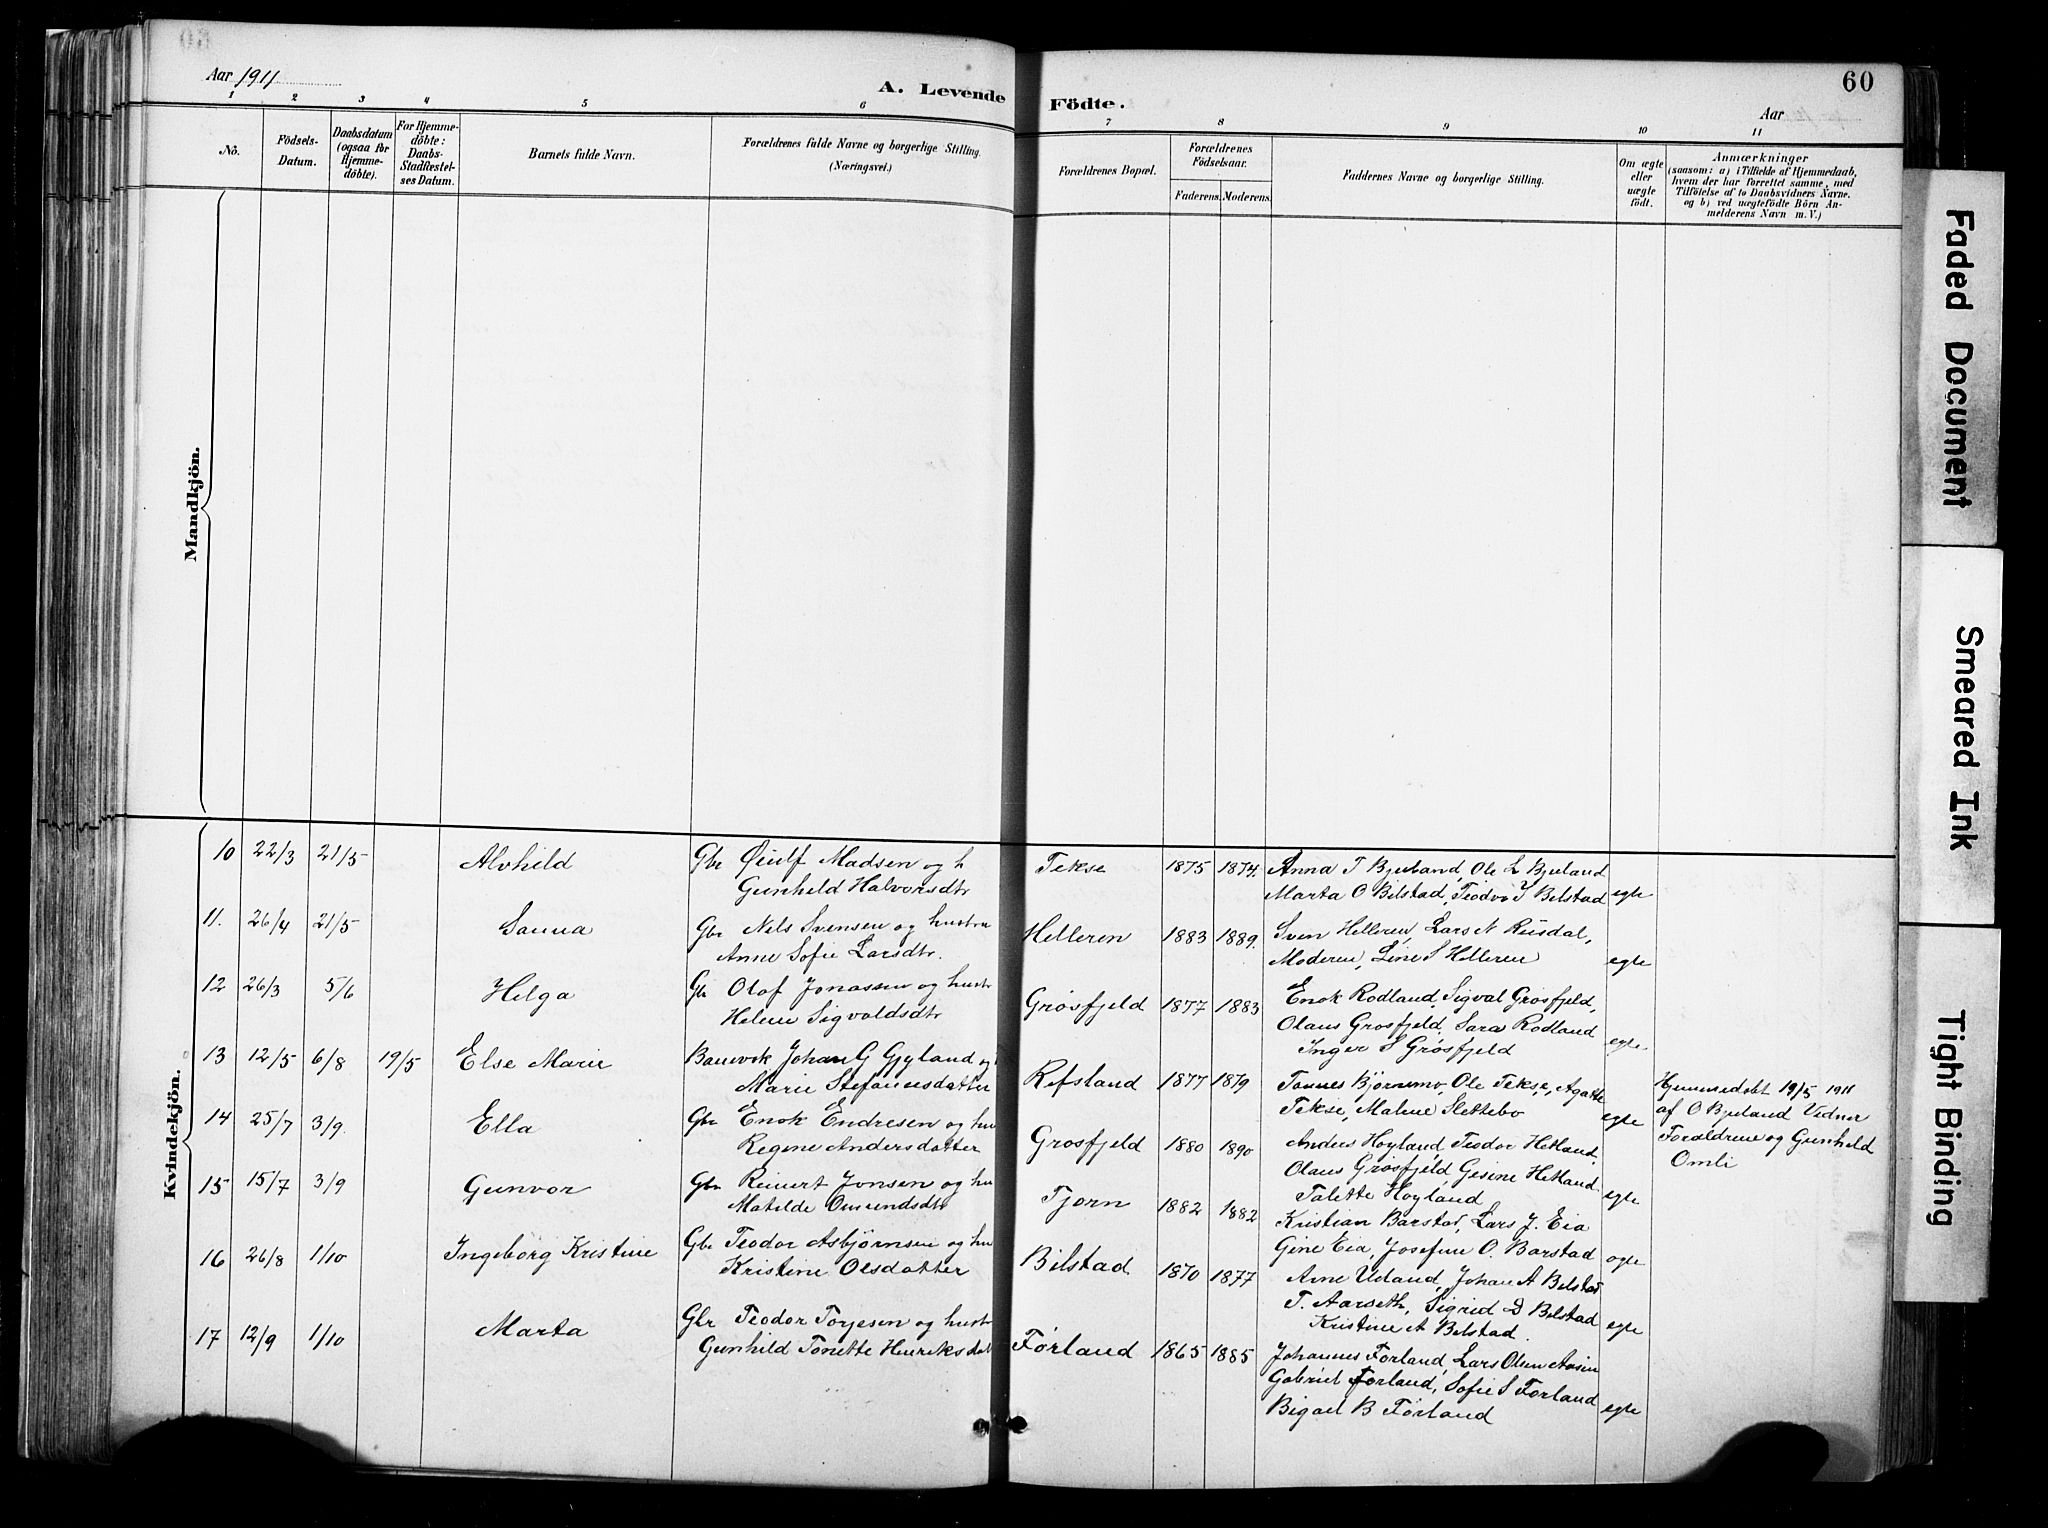 Aar 1911
A. Levende
Födte.
Aar
60
1 2 3 4 5 6 7 8 9 10 11
No.
Födsels-
Datum.
Daabsdatum
(ogsaa for
Hjemme-
döbte).
For Hjemme-
döbte:
Daabs-
Stadfæstel-
ses Datum.
Barnets fulde Navn.
Forældrenes fulde Navne og borgerlige Stilling.
(Næringsvei.)
Forældrenes Bopæl.
Forældrenes
Födselsaar.
Faderens. Moderens.
Faddernes Navne og borgerlige Stilling.
Om ægte
eller
uægte
födt.
Anmærkninger
(saasom: a) i Tilfælde af Hjemmedaab,
hvem der har forrettet samme, med
Tilföielse af to Daabsvidners Navne.
og b) ved uægtefödte Börn An-
melderens Navn m. V.)
Mandkjön.
Kvindekjön.
10 22/3 21/5 Alvhild Gbr Øiulf Madsen og h
Gunhild Halvorsdtr
Tekse 1875 1874. Anna T Bjuland, Ole L Bjuland
Marta O Bilstad, Teodor T Bilstad egte
11. 26/4 21/5 Sanna Gbr Nils Svensen og hustru
Anne Sofie Larsdtr.
Helleren 1883 1889. Sven Helleren, Lars N Ruisdal,
Moderen, Line S Helleren egte
12 26/3 5/6 Helga Gbr Olaf Jonassen og hustr
Helene Sigvaldsdtr
Grøsfjeld 1877 1883 Enok Rodland, Sigval Grøsfjeld,
Olaus Grosfjeld, Sara Rodland
Inger S Grøsfjeld egte
13 12/5 6/8 19/5 Else Marie Banevok Johan G Gyland og
Marie Stefanusdatter
Refsland 1877 1879 Tønnes Bjørnmo, Ole Tekse, Agathe
Tekse, Malene Slettebo egte
Hjemmedøbt 19/5 1911
af O Bjuland Vidner
Forældrene og Gunhild
Omli
14 25/7 3/9. Ella Gbr Enok Endresen og hu
Regine Andersdatter
Grosfjeld 1880 1890 Anders Hoyland, Teodor Hetland,
Olaus Grøsfjeld, Gesine Hetland
Talette Hoyland egte
15 15/7 3/9 Gunvor Gbr Reinert Jonsen og hu
Matilde Omundsdtr
Tjorn 1882 1882 Kristian Barstad, Lars J. Eia
Gine Eia, Josefine O. Barstad egte
16 26/8 1/10 Ingeborg Kristine Gbr Teodor Asbjørnsen og hu
Kristine Olsdatter
Bilstad 1870 1877 Arne Udland, Johan A Bilstad
T. Aarseth, Sigrid D Bilstad
Kristine A Bilstad. egte
17 12/9 1/10 Marta Gbr Teodor Torjesen og hustr
Gunhild Tonette Henriksdat
Førland 1865 1885 Johannes Forland, Lars Olsen Aasen
Gabriel Forland, Sofie S Forland
Bigael B Førland egte
Faded Document
Smeared Ink
Tight Binding